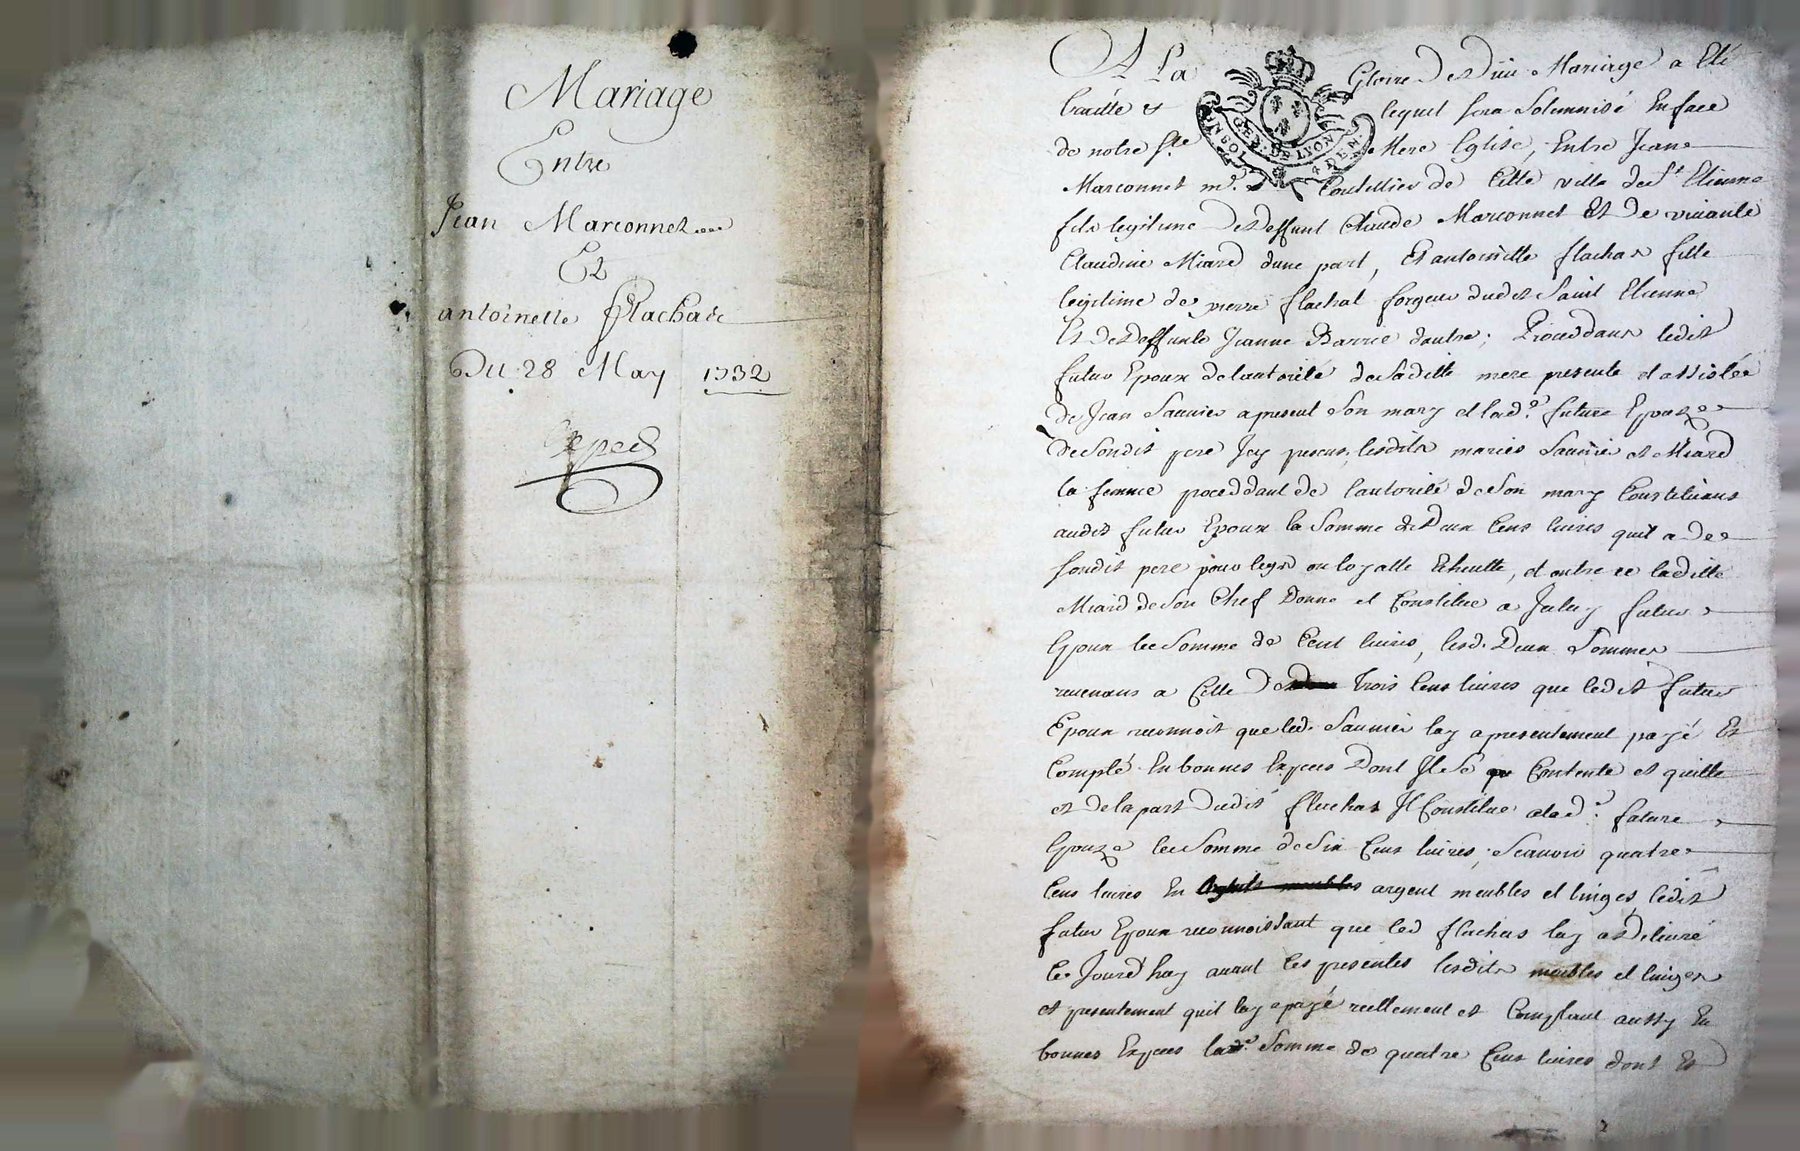 Mariage
Entre
Jean Marconnet
Et
antoinette fflachat
Du 28 May 1732
Exped
A La Gloire de dieu Mariage a Eté
traitté et lequel sera Solemnisé En face
de notre Ste Mere Eglise, Entre Jean
Marconnet md Coutellier de Cette ville de St Etienne
fils legitime de deffunt Claude Marconnet Et de vivante
Claudine Miard dune part, Et antoinette flachat fille
legitime de pierre flachat forgeur dudit Saint Etienne
Et de deffunte Jeanne Barrie dautre; Proceddant ledit
futur Epoux de lautorité de Saditte mere presente et assistée
de Jean Saunier apresent Son mary et lade. future Epouze
de Sondit pere Icy present, lesdits mariés Saunier et Miard
la femme proceddant de l'autorité de Son mary Constituent
audit futur Epoux la Somme de Deux Cens livres quil a de
Sondit pere pour legat ou loyalle Echeutte, et outre ce laditte
Miard de Son Chef Donne et Constitue a Jceluy futur
Epoux la Somme de Cent livres, lesd. Deux Sommes
revenans a Celle de Trois Cens livres que ledit futur
Epoux reconnoit que led. Saunier luy a presentement payé Et
Compté En bonnes Especes Dont Il Se Contente et quitte
et de la part dudit flachat Il Constitue alade. future
Epouze la Somme de Six Cens livres, Scavoir quatre
Cens livres En argent meubles et linges, ledit
futur Epoux reconnoissant que led flachat luy a Délivré
Ce Jourd'huy avant Ces presentes lesdits meubles et linges
et presentement quil luy a payé reellement et Comptant aussy En
bonnes Especes lade. Somme de quatre Cens livres dont Et
GEN. DE LYON